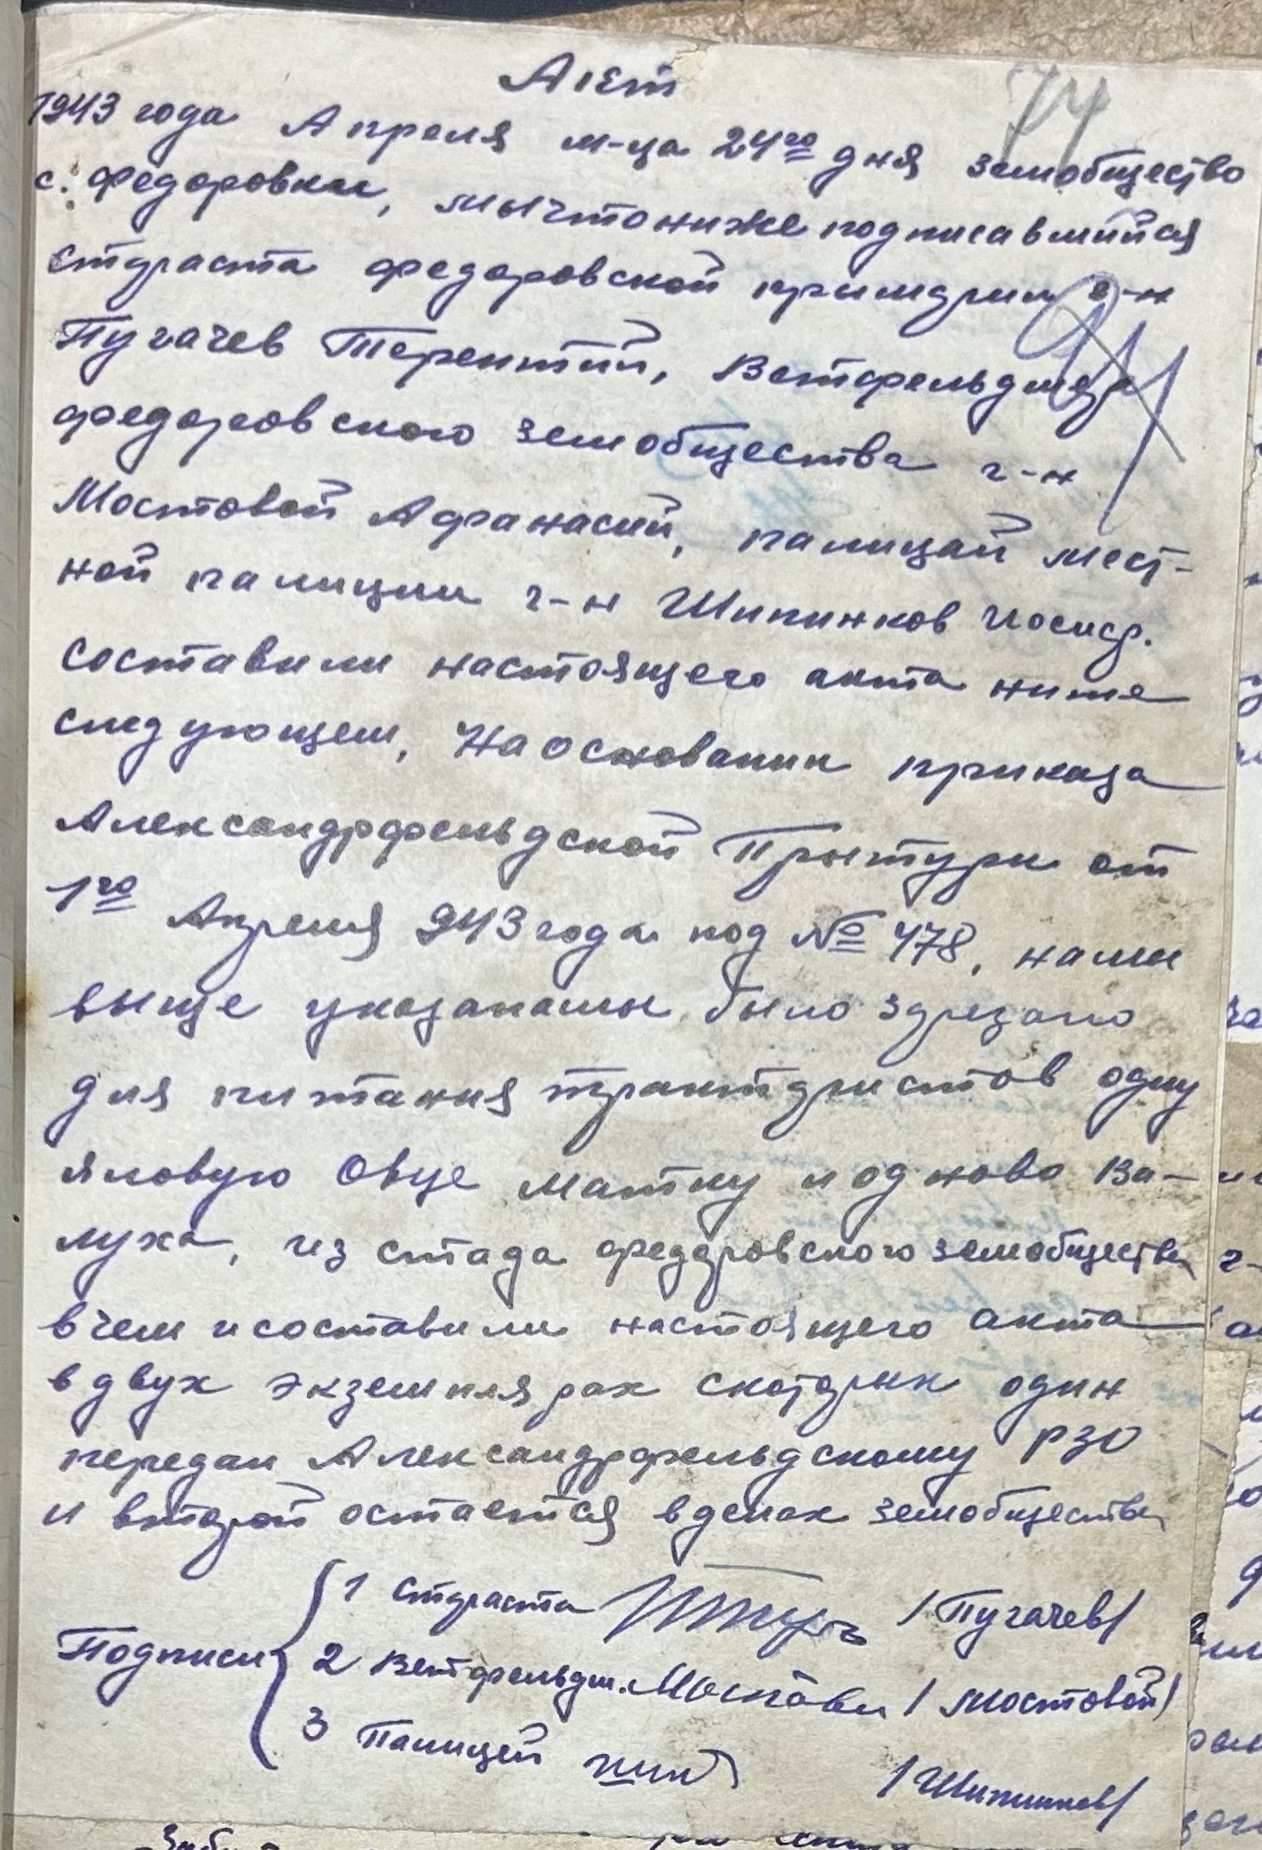 Акт
74
1943 года Апреля м-ца 24го дня земобщество
с. Федоровки, мы что ниже подписавшийся
староста федоровской примарии г-н
Пугачев Терентий, Ветфельдшер
федоровского земобщества г-н
Мостовой Афанасий, палицай мест-
ной палиции г-н Шипинков Иосиф.
составили настоящего акта ниже
следующем, На основании приказа
Александрфельдской Прытуры от
1го Апреля 943 года под № 478, нами
выще указанамы было зрезано
для питания трактористов одну
яловую Овце матку и одново Ва-
луха, из стада федоровского земобщества
в чем и составили настоящего акта
в двух экземплярах скоторых один
передан Александрфельдскому РЗО
и второй остается в делах земобщества
Подписи
1 староста /Пугачев/
2 Ветфельдш. Мостови /Мостовой/
3 Палицей шип /Шипинков/